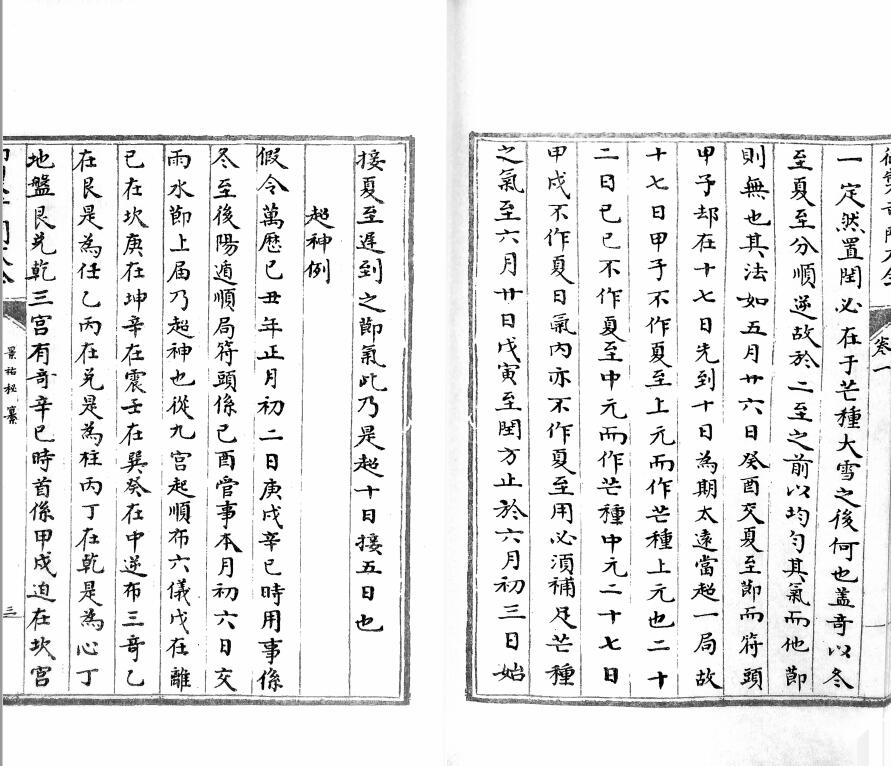 卷一
一定然置閏必在于芒種大雪之後何也蓋奇以冬
至夏至分順逆故於二至之前以均勻其氣而他節
則無也其法如五月廿六日癸酉交夏至節而符頭
甲子却在十七日先到十日為期太遠當超一局故
十七日甲子不作夏至上元而作芒種上元也二十
二日己巳不作夏至中元而作芒種中元二十七日
甲戌不作夏日氣內亦不作夏至用必須補足芒種
之氣至六月廿日戊寅至閏方止於六月初三日始
接夏至遲到之節氣此乃是超十日接五日也
超神例
假令萬歷己丑年正月初二日庚戌辛巳時用事係
冬至後陽遁順局符頭係己酉管事本月初六日交
雨水節上届乃超神也從九宮起順布六儀戊在離
己在坎庚在坤辛在震壬在巽癸在中逆布三奇乙
在艮是為任乙丙在兌是為柱丙丁在乾是為心丁
地盤艮兌乾三宮有奇辛巳時首係甲戌迫在坎宮
景祐秘纂
三